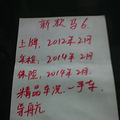 新款马6
上牌，2012年2月
年检，2014年2月
保险，2014年2月
精品车况一手车
带导航